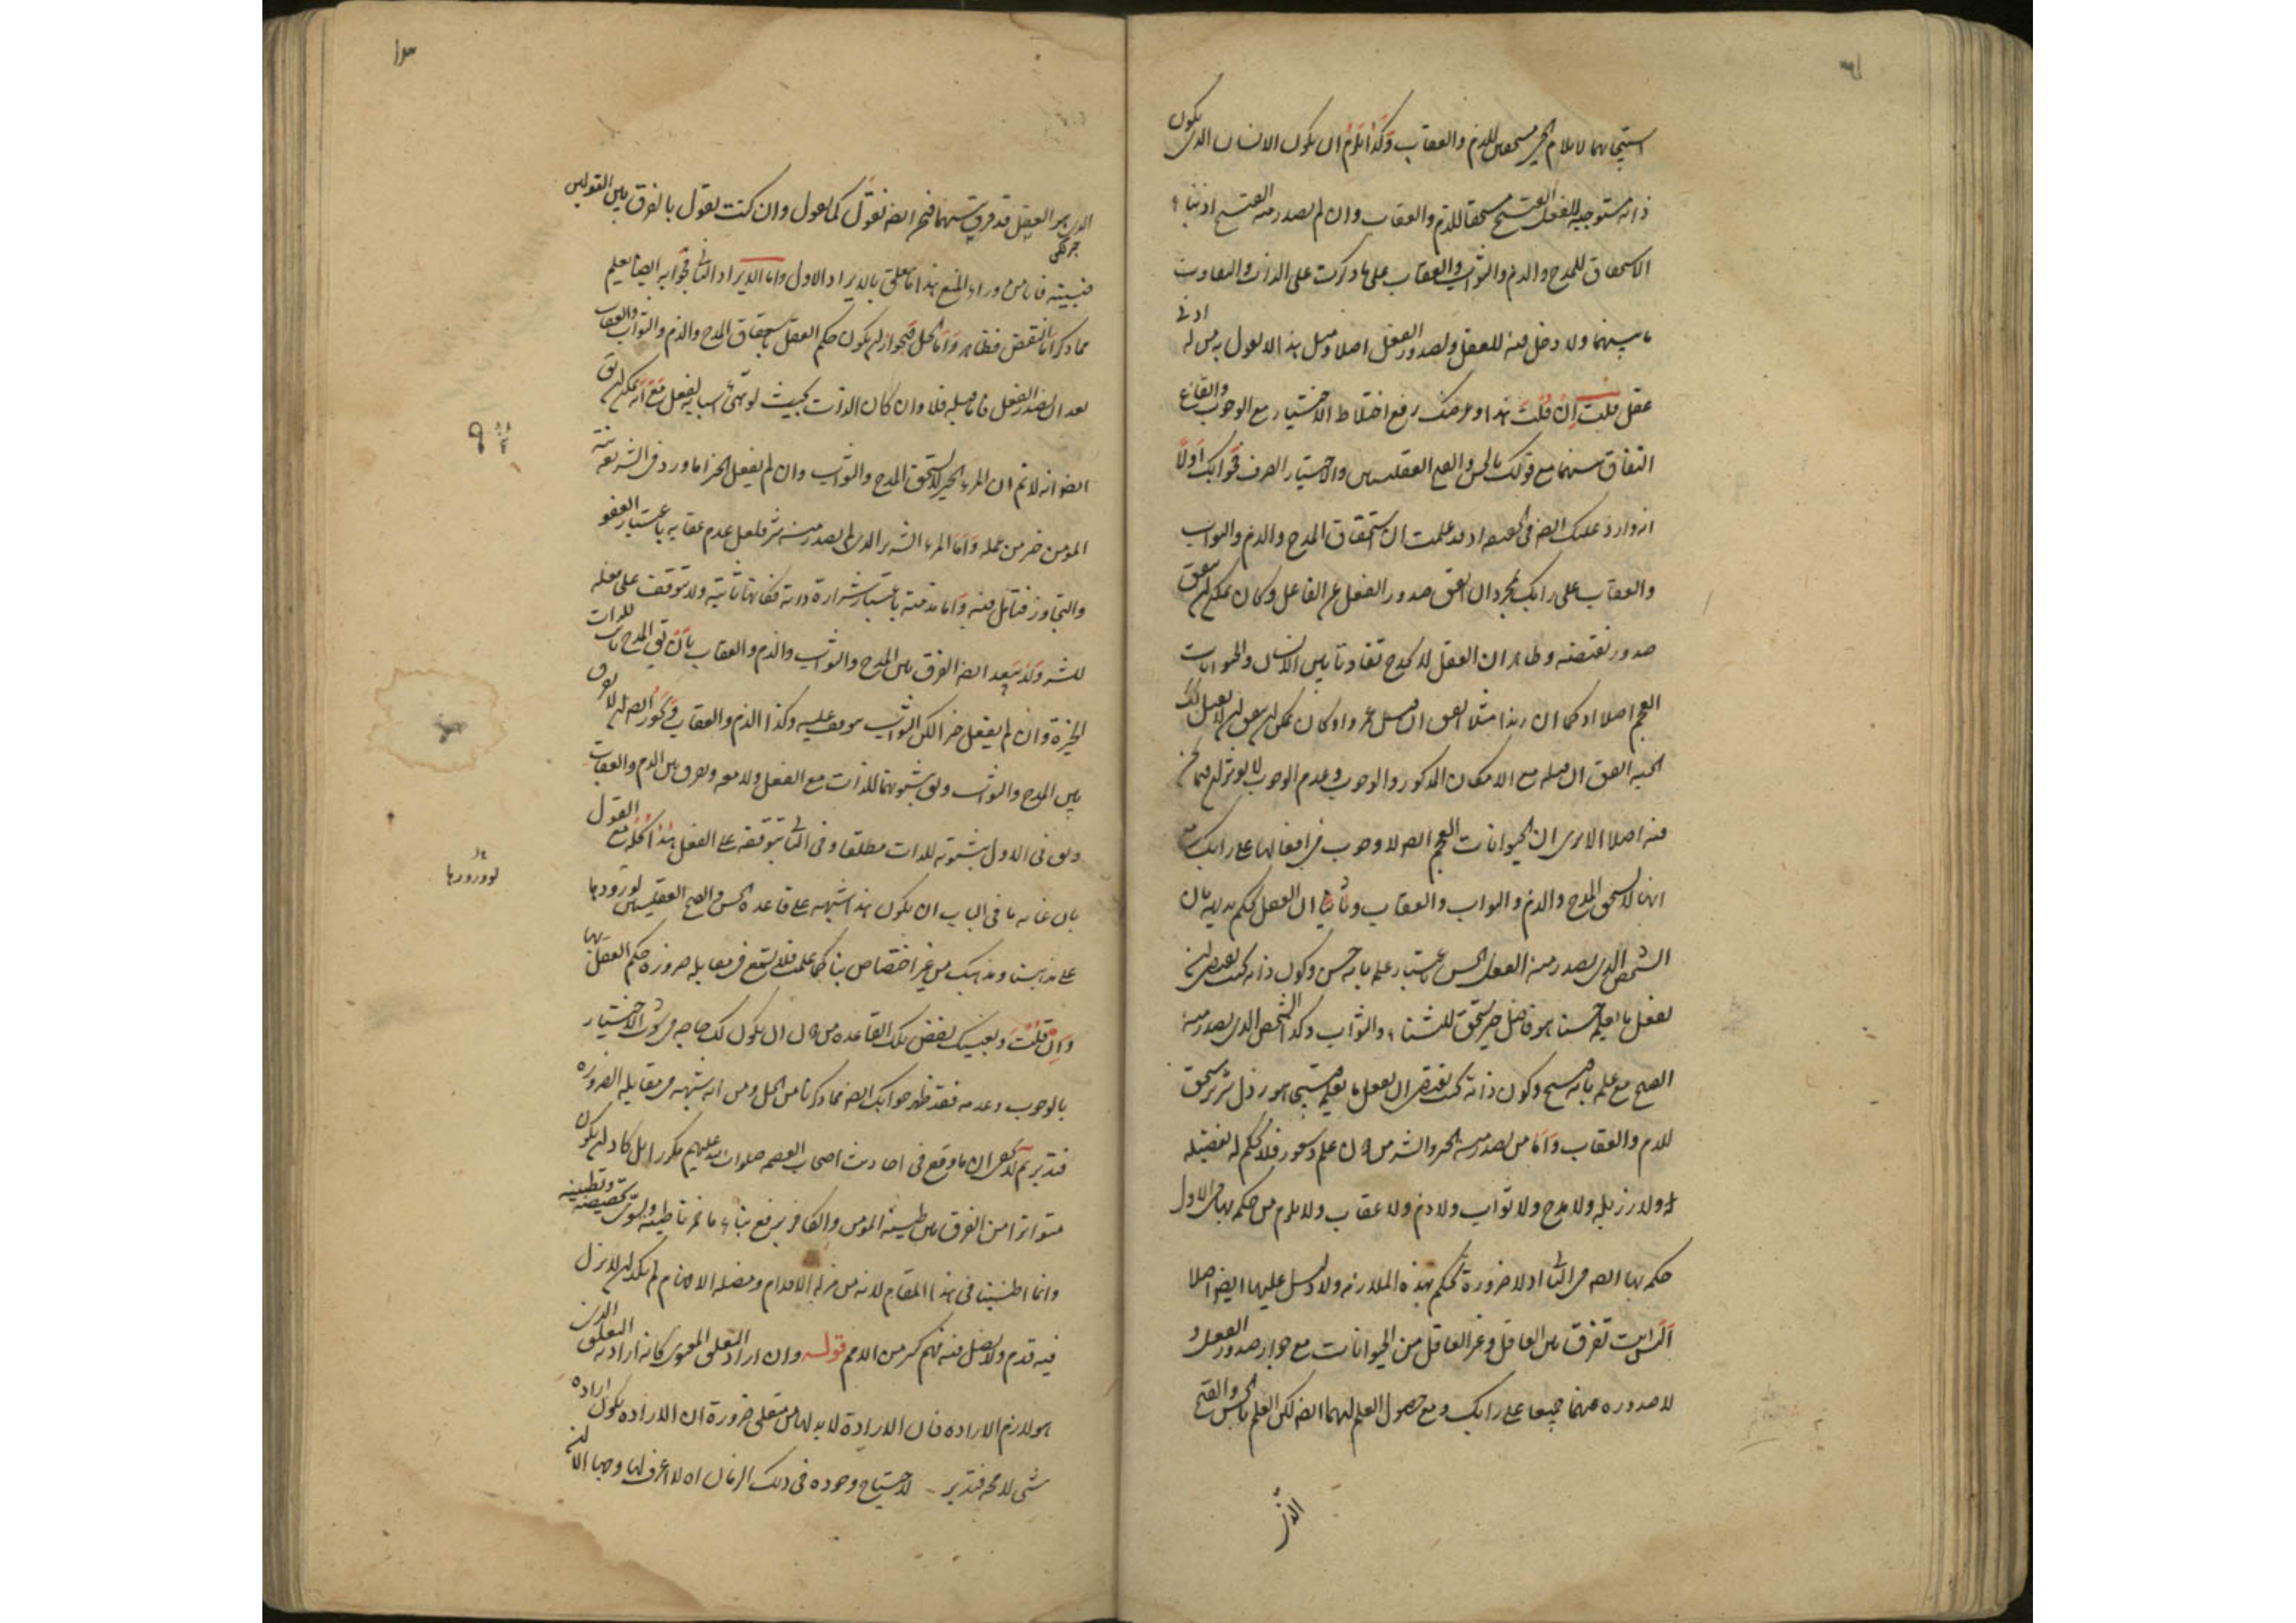 استيجابهما لايلام الخير مستحقين للذم والعقاب وكذا يلزم ان يكون الانسان الذى يكون
ذاته مستوجبة للفعل القبيح مستحقا للذم والعقاب وان لم يصدر منه القبيح اذ بناء
الاستحقاق للمدح والذم والثواب والعقاب على ما ذكرت على الذات والتفاوت
ما بينهما ولا دخل فيه للعقل ولصدور الفعل اصلا ومثل هذا لا يقول به من له ادنى
عقل قلت ان قلت هذا وغرضك رفع اختلاط الاختيار مع الوجوب والقاع
التفاق بينهما مع قولك بالحسن والقبح العقليين والاختيار الصرف فجوابك اولا
انه وارد عليك ايضا فى الحقيقة اذ قد علمت ان استحقاق المدح والذم والثواب
والعقاب على رايك بمجرد ان اتفق صدور الفعل عن الفاعل وكان يمكن ان يتفق
صدور نقيضه وظاهر ان العقل لا يجد تفاوتا بين الانسان والحيوانات
العجم اصلا اذ كما ان زيدا مثلا اتفق ان قتل عمروا وكان يمكن ان يتفق ان لا يفعل كذلك
الحية اتفق ان فعله مع الامكان المذكور والوجوب وعدم الوجوب لا يؤثر له فيما نحن
فيه اصلا الا ترى ان الحيوانات العجم ايضا لا وجوب فى افعالها على رايك مع
انها لا يستحق المدح والذم والثواب والعقاب وثانيا ان العقل يحكم بديهة بان
الشخص الذى يصدر منه الفعل الحسن باعتبار علمه بانه حسن وكون ذاته بحيث يقتضى ان
يفعل ما يعلمه حسنا هو فاضل خير يستحق للثناء والثواب وكذا الشخص الذى يصدر منه
القبيح مع علمه بانه قبيح وكون ذاته بحيث يقتضى ان يفعل ما يعلمه قبيحا هو رذل شرير يستحق
للذم والعقاب واما من يصدر منه الخير والشر من دون علم وشعور فلا يحكم له بفضيلة
له ولا رزيلة ولا مدح ولا ثواب ولا ذم ولا عقاب ولا يلزم من حكمه بها فى الاول
حكمه بها ايضا فى الثانى اذ لا ضرورة تحكم بهذه الملازمة ولا دليل عليها ايضا اصلا
الست تفرق بين العاقل وغير العاقل من الحيوانات مع جواز صدور الفعل و
لا صدوره عنهما جميعا على رايك ومع حصول العلم لهما ايضا لكن العلم بالحسن والقبح
الذى
١٣
الذى هو العقل قد فرق بينهما فنحن ايضا نقول كما تقول وان كنت تقول بالفرق بين القولين
فبينه فانا من وراء المنع هذا ما يتعلق بالايراد الاول واما الايراد الثانى فجوابه ايضا يعلم
مما ذكرنا اما النقض فظاهر واما الحل فبجواز ان يكون حكم العقل باستحقاق المدح والذم والثواب والعقاب
بعد ان يصدر الفعل فاما قبله فلا وان كان الذات بحيث لو تهئ اسبابه لفعل مع انه يمكن ان يق
ايضا انه لا نم ان المرء الخير لا يستحق المدح والثواب وان لم يفعل الخير اما ورد فى الشريعة نية
المؤمن خير من عمله واما المرء الشرير الذى لم يصدر منه شر فلعل عدم عقابه باعتبار العفو
والتجاوز فتامل فيه واما مذمته باعتبار شرارة ذاته فكانها ثابتة ولا تتوقف على فعله
للشر ولا يبعد ايضا الفرق بين المدح والثواب والذم والعقاب بان يق المدح ثابت للذات
الخيرة وان لم يفعل خيرا لكن الثواب موقف عليه وكذا الذم والعقاب ويجوز ايضا ان لا يفرق
بين المدح والثواب ويق بثبوتهما للذات مع الفعل ولا معه ويفرق بين الذم والعقاب
ويق فى الاول بثبوته للذات مطلقا وفى الثانى بتوقفه على الفعل هذا كله مع القول
بان غاية ما فى الباب ان يكون هذا شبهة على قاعدة الحسن والقبح العقليين لورودها
على مذهبنا ومذهبك من غير اختصاص بنا كما علمت فلا تسمع فى مقابلة ضرورة حكم العقل بها
وان قلت وبغيتك نقض تلك القاعدة من دون ان يكون لك حاجة فى ثبوت الاختيار
بالوجوب وعدمه فقد ظهر جوابك ايضا مما ذكرنا من الحل ومن انه شبهة فى مقابلة الضرورة
فتدبر ثم لا يخفى ان ما وقع فى احاديث اصحاب العصمة صلوات الله عليهم مكررا بل كاد ان يكون
متواترا من الفرق بين طينة المؤمن والكافر يرفع بناء ما خمرنا طينه وسوى تخصيصه وتطيينه
وانما اطنبنا فى هذا المقام لانه من مزلة الاقدام ومضلة الافهام لم يكد ان لا يزل
فيه قدم ولا يضل فيه فهم كثير من الامم قوله وان اراد التعلق المعنوى كانه اراد به التعلق الذى
هو لازم الارادة فان الارادة لا بد لها من متعلق ضرورة ان الارادة يكون ارادة
شئ لا محة فتدبر لاحتياج وجوده فى ذلك الزمان اه لا اعرف لها وجها الا ان
لورودها